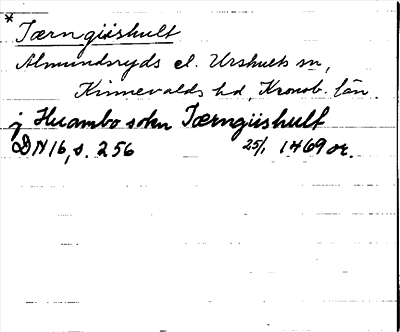 *
Tærngiishult
Almundsryds el. Urshults sn,
Kinnevalds hd, Kronob. län.
j Huambo sokn Tærngiishult
DN 16, s. 256 25/1 1469 or.